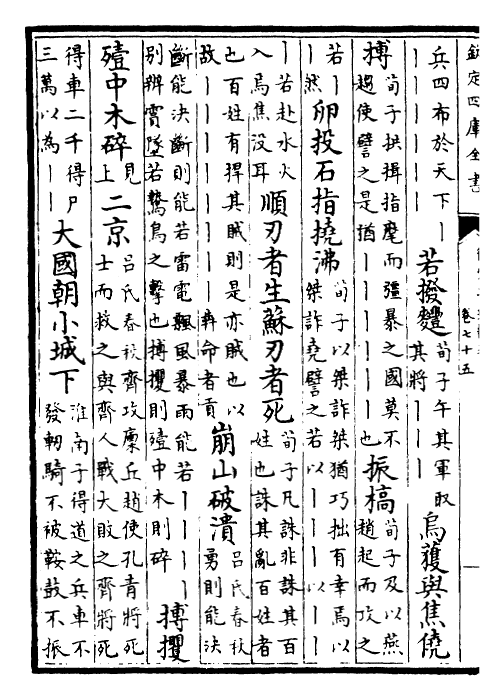 欽定四庫全書
卷七十五
兵四布於天下丨
丨丨丨丨丨
若撥麷
荀子午其軍取
其將丨丨丨
烏獲與焦僥
搏
荀子拱揖指麾而彊暴之國莫不
趨使譬之是猶丨丨丨丨丨丨也
振槁
荀子及以燕
趙起而攻之
若丨
丨然
卵投石指撓沸
荀子以桀詐桀猶巧拙有幸焉以
桀詐堯譬之若以丨丨丨以丨丨
丨若赴水火
入焉焦没耳
順刃者生蘇刃者死
荀子凡誅非誅其百
姓也誅其亂百姓者
也百姓有捍其賊則是亦賊也以
故丨丨丨丨丨丨丨丨犇命者貢
崩山破潰
吕氏春秋
勇則能決
斷能決斷則能若雷電飄風暴雨能若丨丨丨丨
别辨霣墜若鷙鳥之擊也搏攫則殪中木則碎
搏攫
殪中木碎
見
上
二京
吕氏春秋齊攻廩丘趙使孔青將死
士而救之與齊人戰大敗之齊將死
得車二千得尸
三萬以為丨丨
大國朝小城下
淮南子得道之兵車不
發軔騎不被鞍鼓不振